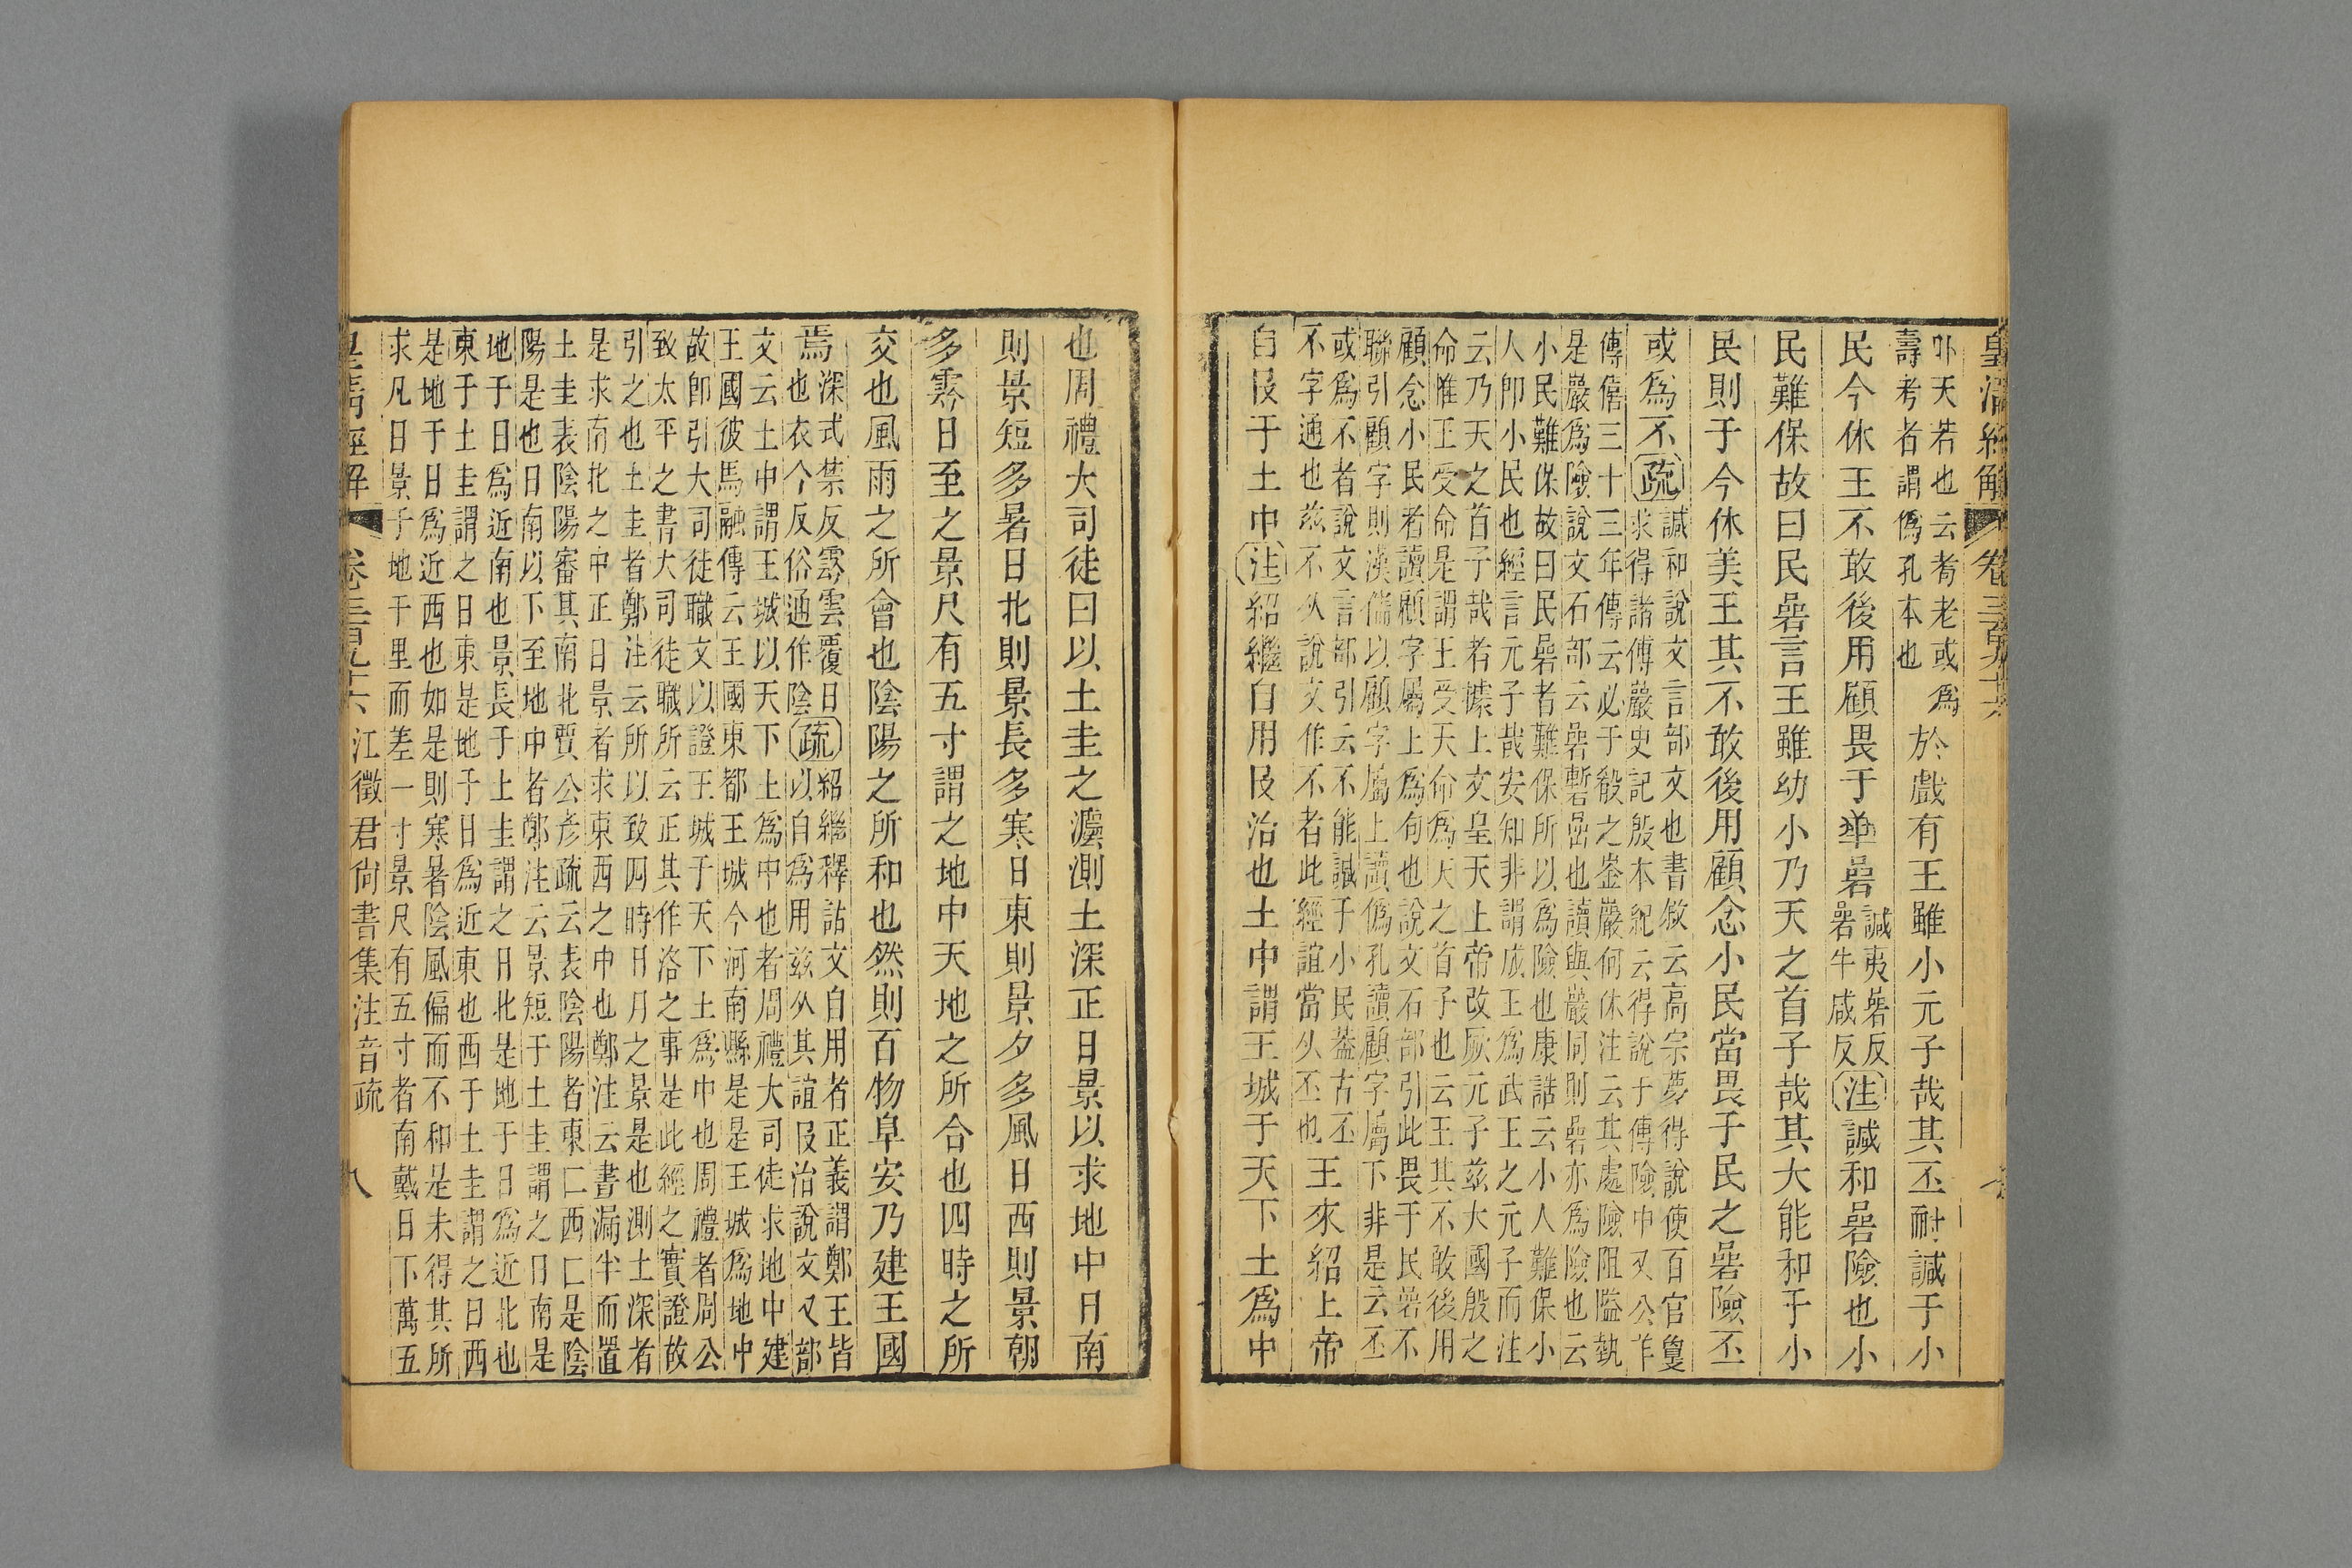 皇清經解 卷三百九十六
卟天若也云耇老或爲
壽考者謂僞孔本也
於戲有王雖小元子哉其丕耐諴于小
民今休王不敢後用顧畏于
諴夷嵒反
嵒牛咸反
注諴和嵒險也小
民難保故曰民嵒言王雖幼小乃天之首子哉其大能和于小
民則于今休美王其不敢後用顧念小民當畏于民之嵒險丕
或爲不疏
諴和說文言部文也書敘云高宗夢得說使百官夐
求得諸傅巖史記殷本紀云得說于傅險中又公羊
傳僖三十三年傳云必于殽之崟巖何休注云其處險阻隘埶
是巖爲險說文石部云嵒暫嵒也讀與巖同則嵒亦爲險也云
小民難保故曰民嵒者難保所以爲險也康誥云小人難保小
人卽小民也經言元子哉安知非謂成王爲武王之元子而注
云乃天之首子哉者據上文皇天上帝改厥元子茲大國殷之
命惟王受命是謂王受天命爲天之首子也云王其不敢後用
顧念小民者讀顧字屬上爲句也說文石部引此畏于民嵒不
聯引顧字則漢儒以顧字屬上讀僞孔讀顧字屬下非是云丕
或爲不者說文言部引云不能諴于小民葢古丕
不字通也茲不从說文作不者此經誼當从丕也
王來紹上帝
自𠬝于土中注紹繼自用𠬝治也土中謂王城于天下土爲中
也周禮大司徒曰以土圭之灋測土深正日景以求地中日南
則景短多暑日北則景長多寒日東則景夕多風日西則景朝
多霒日至之景尺有五寸謂之地中天地之所合也四時之所
交也風雨之所會也陰陽之所和也然則百物阜安乃建王國
焉
深式禁反霒雲覆日
也衣今反俗通作陰
疏
紹繼釋詁文自用者正義謂鄭王皆
以自爲用茲从其誼𠬝治說文又部
文云土中謂王城以天下土爲中也者周禮大司徒求地中建
王國彼馬融傳云王國東都王城今河南縣是是王城爲地中
故卽引大司徒職文以證王城于天下土爲中也周禮者周公
致太平之書大司徒職所云正其作洛之事是此經之實證故
引之也土圭者鄭注云所以致四時日月之景是也測土深者
是求南北之中正日景者求東西之中也鄭注云晝漏半而置
土圭表陰陽審其南北賈公彥疏云表陰陽者東仁西仁是陰
陽是也日南以下至地中者鄭注云景短于土圭謂之日南是
地于日爲近南也景長于土圭謂之日北是地于日爲近北也
東于土圭謂之日東是地于日爲近東也西于土圭謂之日西
是地于日爲近西也如是則寒暑陰風偏而不和是未得其所
求凡日景于地千里而差一寸景尺有五寸者南戴日下萬五
皇清經解 卷三百九十六 江徵君尙書集注音疏 八